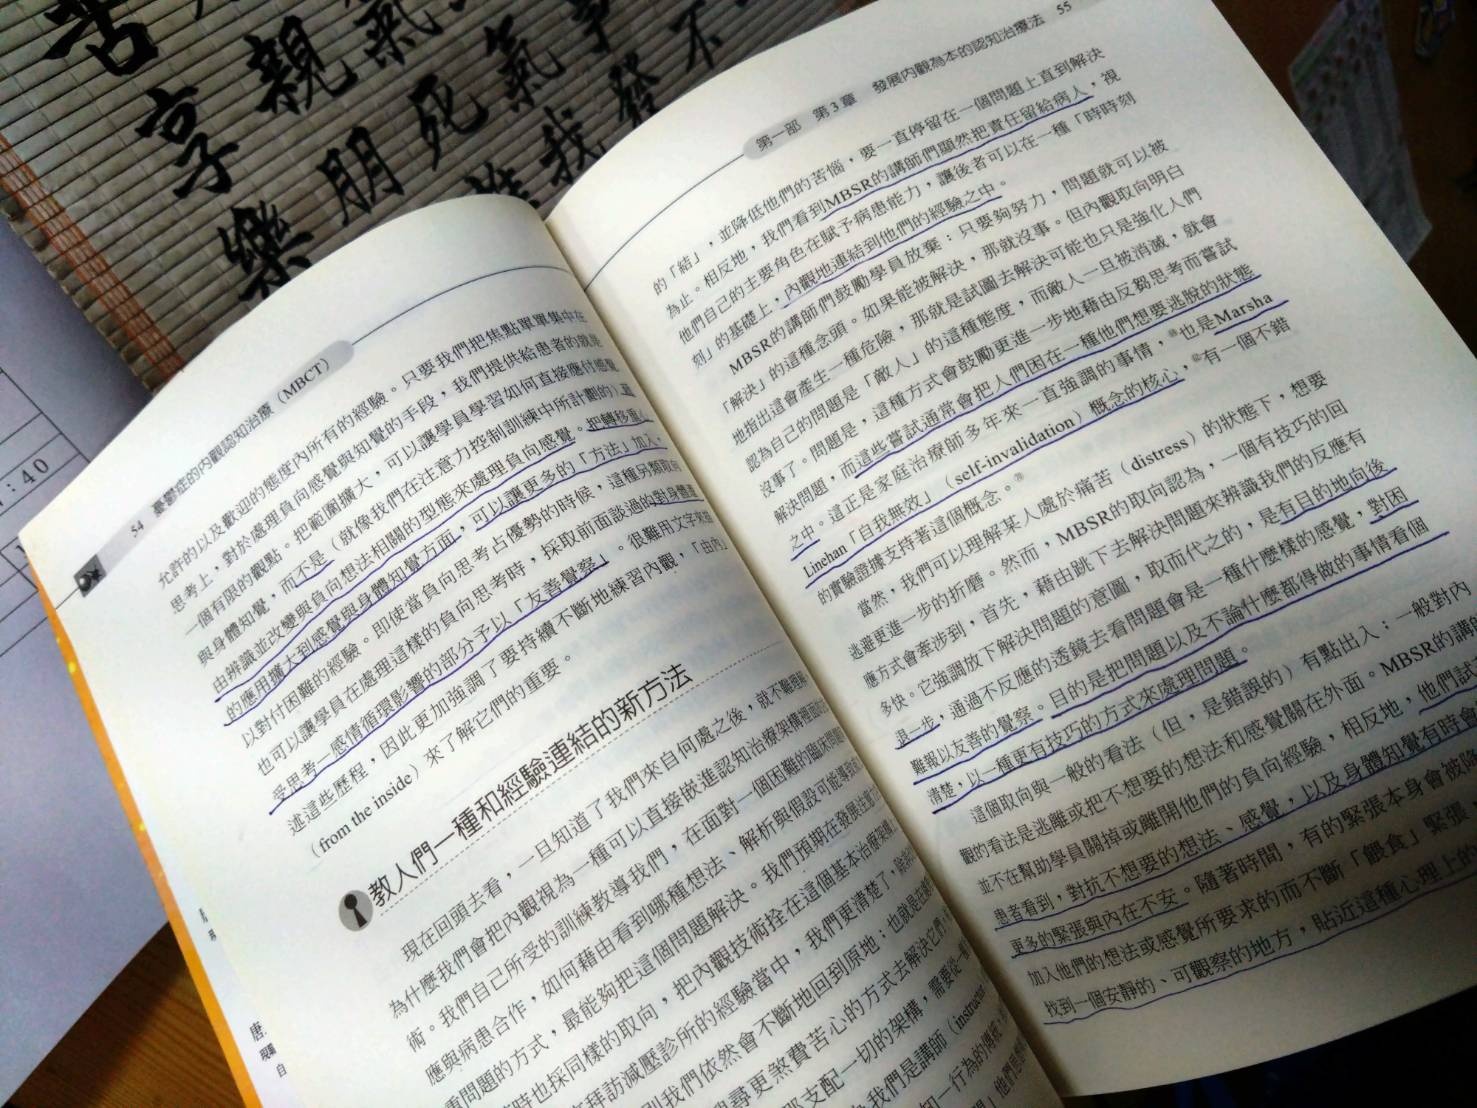 苦
享親氣
樂朋死氣事
我發不
54 憂鬱症的內觀認知治療（MBCT）
允許的以及歡迎的態度內所有的經驗。只要我們把焦點單單集中在
思考上，對於處理負向感覺與知覺的手段，我們提供給患者的就是
一個有限的觀點。把範圍擴大，可以讓學員學習如何直接應付感覺
與身體知覺，而不是（就像我們在注意力控制訓練中所計劃的）藉
由辨識並改變與負向想法相關的型態來處理負向感覺。把轉移重心
的應用擴大到感覺與身體知覺方面，可以讓更多的「方法」加入，
以對付困難的經驗。即使當負向思考占優勢的時候，這種另類取向
也可以讓學員在處理這樣的負向思考時，採取前面談過的對身體遭
受思考—感情循環影響的部分予以「友善覺察」。很難用文字來描
述這些歷程，因此更加強調了要持續不斷地練習內觀，「由內」
（from the inside）來了解它們的重要。
教人們一種和經驗連結的新方法
現在回頭去看，一旦知道了我們來自何處之後，就不難理解
為什麼我們會把內觀視為一種可以直接嵌進認知治療架構裡面的技
術。我們自己所受的訓練教導我們，在面對一個困難的臨床問題
應與病患合作，如何藉由看到哪種想法、解析與假設可能導致
重問題的方式，最能夠把這個問題解決。我們預期在發展注意力
時也採同樣的取向，把內觀技術拴在這個基本治療架構上
拜訪減壓診所的經驗當中，我們更清楚了，除非
則我們依然會不斷地回到原地：也就是在遇到
尋更煞費苦心的方式去解決它們
那支配一切的架構，需要從一種
我們是講師（instructor
第一部 第3章 發展內觀為本的認知治療法 55
的「結」，並降低他們的苦惱，要一直停留在一個問題上直到解決
為止。相反地，我們看到MBSR的講師們顯然把責任留給病人，視
他們自己的主要角色在賦予病患能力，讓後者可以在一種「時時刻
刻」的基礎上，內觀地連結到他們的經驗之中。
MBSR的講師們鼓勵學員放棄：只要夠努力，問題就可以被
「解決」的這種念頭。如果能被解決，那就沒事。但內觀取向明白
地指出這會產生一種危險，那就是試圖去解決可能也只是強化人們
認為自己的問題是「敵人」的這種態度，而敵人一旦被消滅，就會
沒事了。問題是，這種方式會鼓勵更進一步地藉由反芻思考而嘗試
解決問題，而這些嘗試通常會把人們困在一種他們想要逃脫的狀態
之中。這正是家庭治療師多年來一直強調的事情，也是Marsha
Linehan「自我無效」（self-invalidation）概念的核心，有一個不錯
的實驗證據支持著這個概念。
當然，我們可以理解某人處於痛苦（distress）的狀態下，想要
逃避更進一步的折磨。然而，MBSR的取向認為，一個有技巧的回
應方式會牽涉到，首先，藉由跳下去解決問題來辨識我們的反應有
多快。它強調放下解決問題的意圖，取而代之的，是有目的地向後
退一步，通過不反應的透鏡去看問題會是一種什麼樣的感覺，對困
難報以友善的覺察。目的是把問題以及不論什麼都得做的事情看個
清楚，以一種更有技巧的方式來處理問題。
這個取向與一般的看法（但，是錯誤的）有點出入：一般對內
觀的看法是逃離或把不想要的想法和感覺關在外面。MBSR的講師
並不在幫助學員關掉或離開他們的負向經驗，相反地，他們試
患者看到，對抗不想要的想法、感覺，以及身體知覺有時會
更多的緊張與內在不安。隨著時間，有的緊張本身會被降
加入他們的想法或感覺所要求的而不斷「餵食」緊張
找到一個安靜的、可觀察的地方，貼近這種心理上的
: 40
唐
自